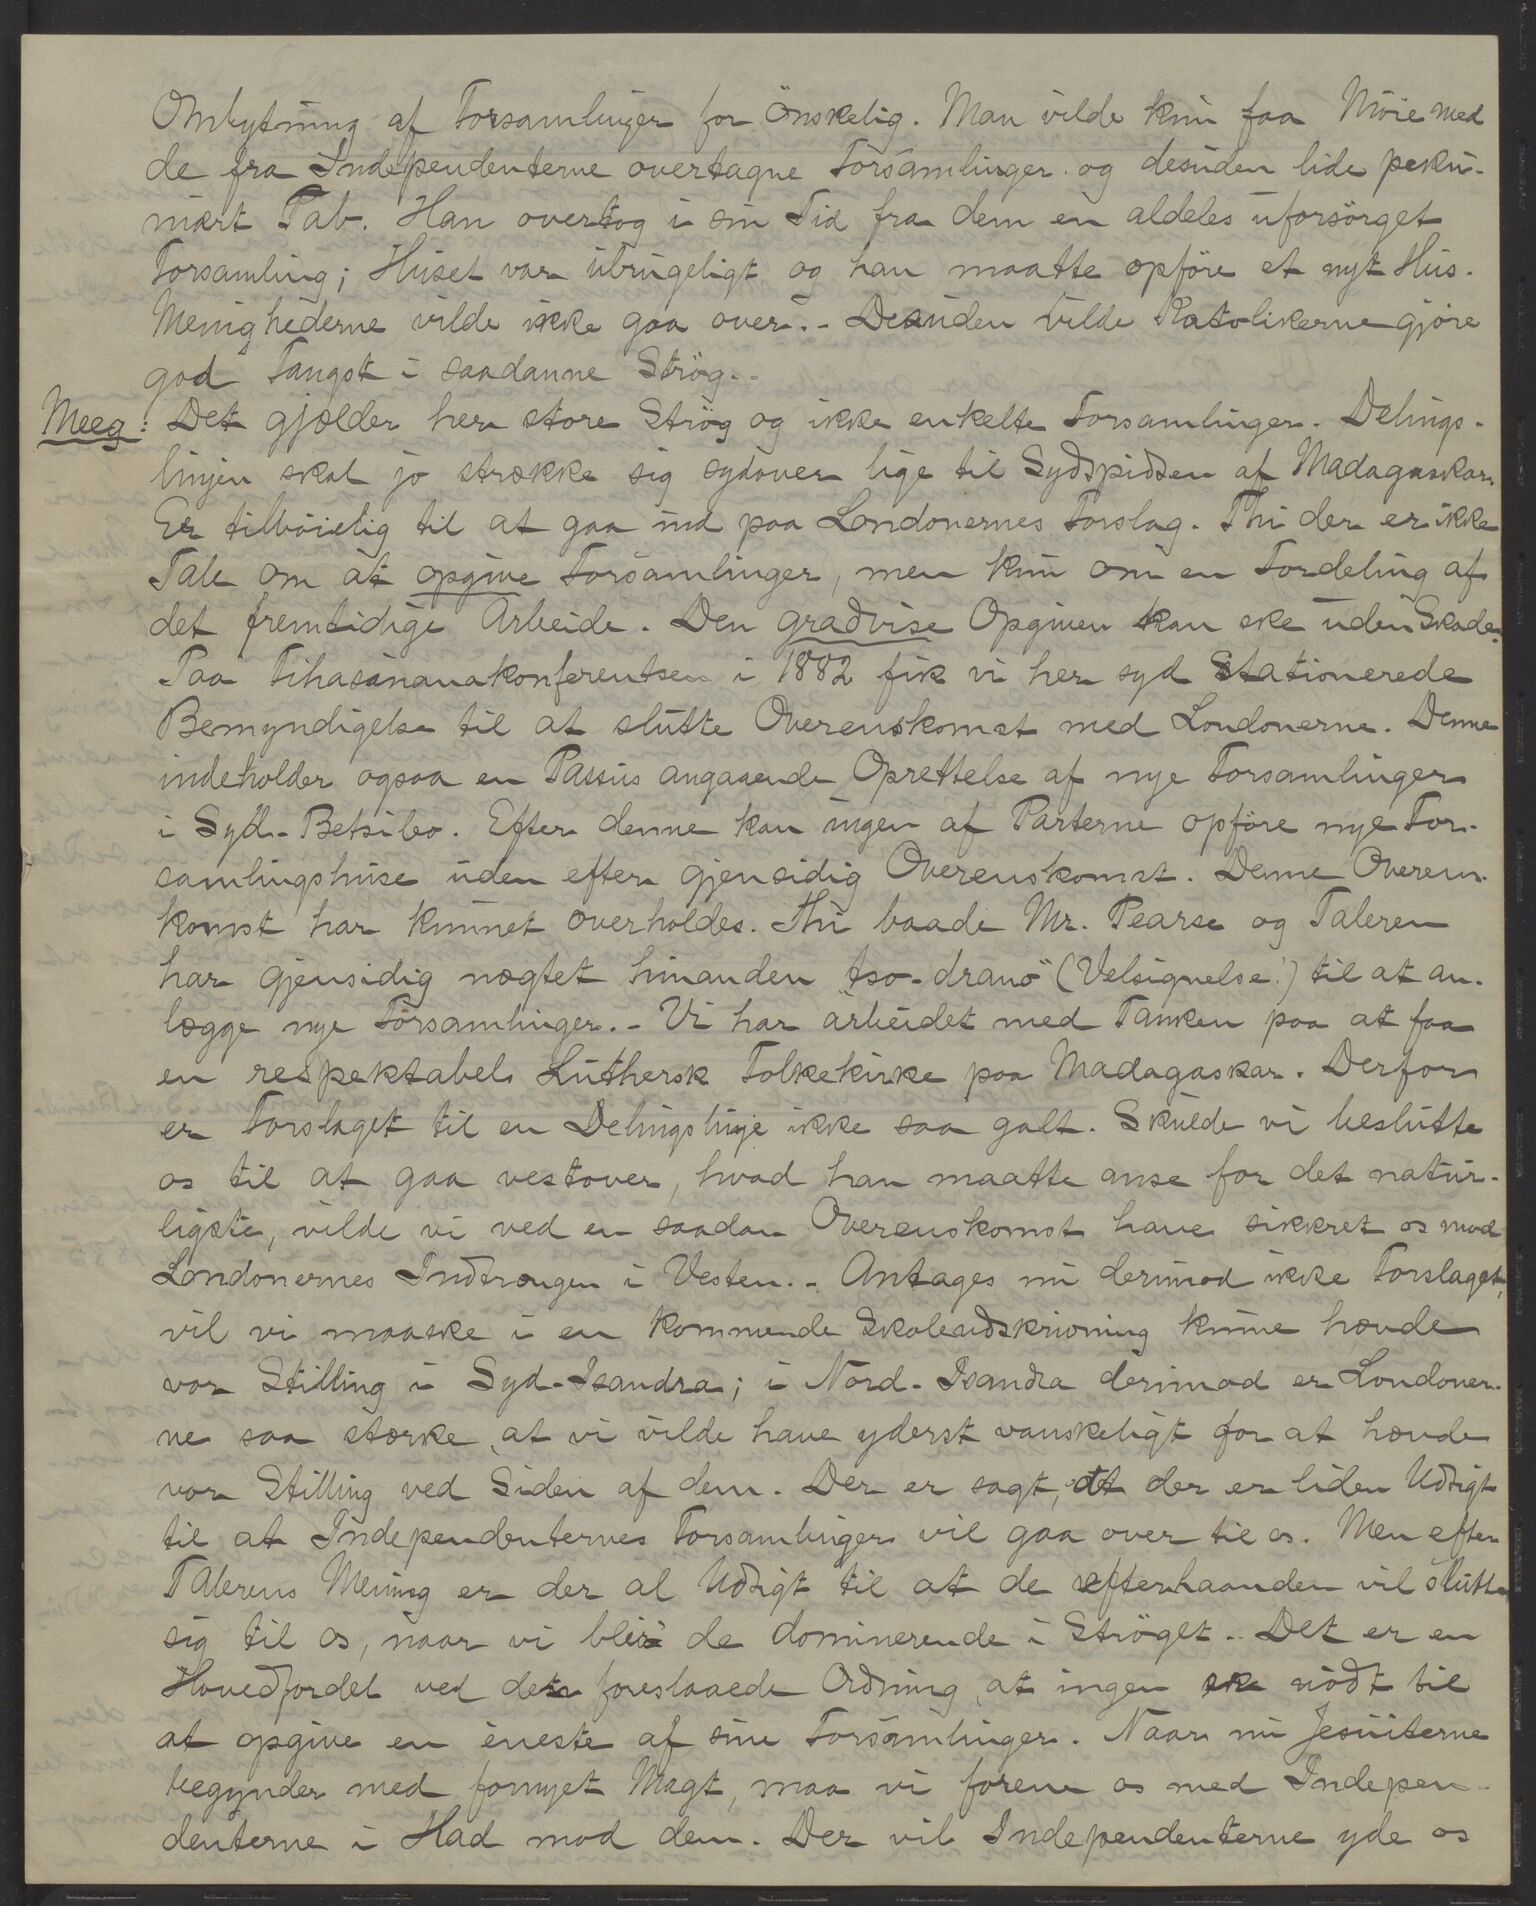 Ombytning af Forsamlinger for önskelig. Man vilde kun faa Möie med
de fra Independenterne overtagne Forsamlinger og desuden lide peku-
niært Tab. Han overtog i sin Tid fra dem en aldeles uforsörget
Forsamling; Huset var ubrugeligt og han maatte opföre et nyt Hus.
Menighederne vilde ikke gaa over. - Desuden vilde Katolikerne gjöre
god Fangst i saadanne Strög. -
Meeg: Det gjælder her store Strög og ikke enkelte Forsamlinger. Delings-
linjen skal jo strække sig sydover lige til Sydspidsen af Madagaskar.
Er tilböielig til at gaa ind paa Londonernes Forslag. Thi der er ikke
Tale om at opgive Forsamlinger, men kun om en Fordeling af
det fremtidige Arbeide. Den gradvise Opgiven kan ske uden Skade.
Paa Fihasinanakonferentsen i 1882 fik vi her syd Stationerede
Bemyndigelse til at slutte Overenskomst med Londonerne. Denne
indeholder ogsaa en Passus angaaende Oprettelse af nye Forsamlinger
i Syd-Betsileo. Efter denne kan ingen af Parterne opföre nye For-
samlingshuse uden efter gjensidig Overenskomst. Denne Overens-
komst har kunnet overholdes. Thi baade Mr. Pearse og Taleren
har gjensidig nægtet hinanden "tso-drano" (Velsignelse!) til at an-
lægge nye Forsamlinger. - Vi har arbeidet med Tanken paa at faa
en respektabel Luthersk Folkekirke paa Madagaskar. Derfor
er Forslaget til en Delingslinje ikke saa galt. Skulde vi beslutte
os til at gaa vestover, hvad han maatte anse for det natur-
ligste, vilde vi ved en saadan Overenskomst have sikkret os mod
Londonernes Indtrængen i Vesten. - Antages nu derimod ikke Forslaget,
vil vi maaske i en kommende Skoleudskrivning kunne hævde
vor Stilling i Syd-Isandra; i Nord-Isandra derimod er Londoner-
ne saa stærke, at vi vilde have yderst vanskeligt for at hævde
vor Stilling ved Siden af dem. Der er sagt, at der er liden Udsigt
til at Independenternes Forsamlinger vil gaa over til os. Men efter
Talerens Mening er der al Udsigt til at de efterhaanden vil slutte
sig til os, naar vi bliver de dominerende i Ströget. - Det er en
Hovedfordel ved den foreslaaede Ordning, at ingen er nödt til
at opgive en eneste af sine Forsamlinger. Naar nu Jesuiterne
begynder med fornyet Magt, maa vi forene os med Indepen-
denterne i Had mod dem. Der vil Independenterne yde os